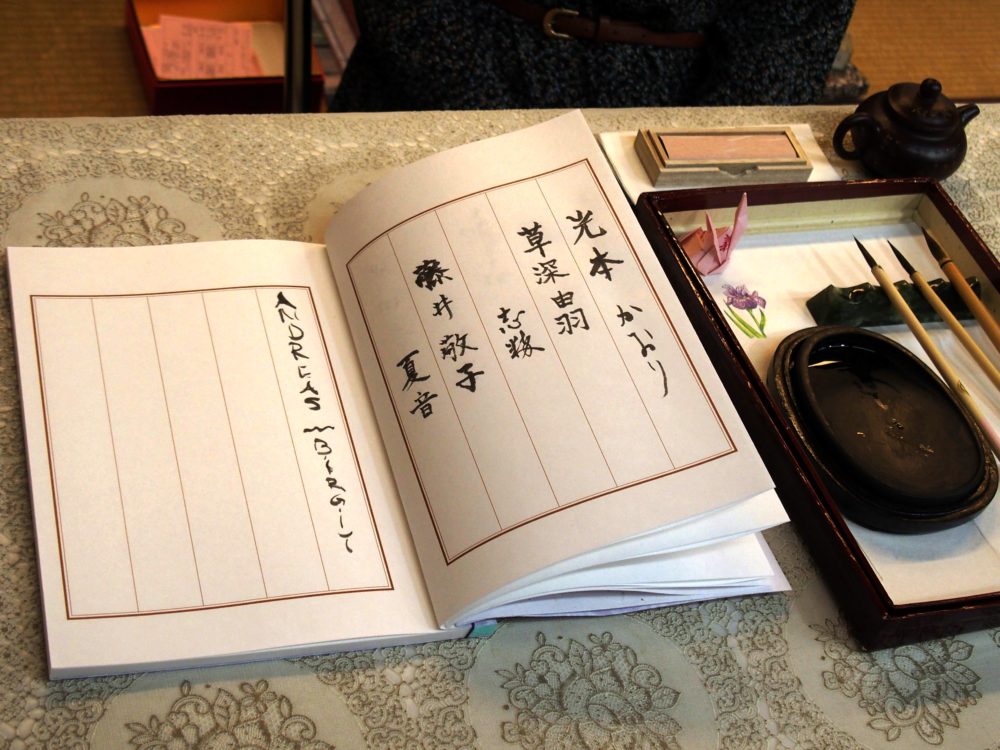 光本 かおり
草深由羽
志
藤井 敬子
夏音
ANDREAS
BIRGIT